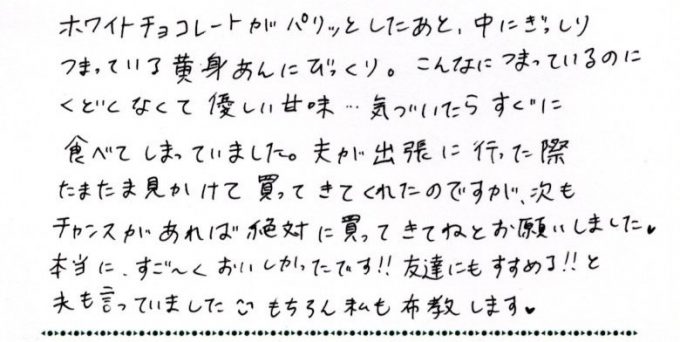 ホワイトチョコレートがパリッとしたあと、中にぎっしり
つまっている黄身あんにびっくり。こんなにつまっているのに
くどくなくて優しい甘味…気づいたらすぐに
食べてしまっていました。夫が出張に行った際
たまたま見かけて買ってきてくれたのですが、次も
チャンスがあれば絶対に買ってきてねとお願いしました♥
本当に、すご〜くおいしかったです!!友達にもすすめる!!と
夫も言っていました☺もちろん私も布教します♥